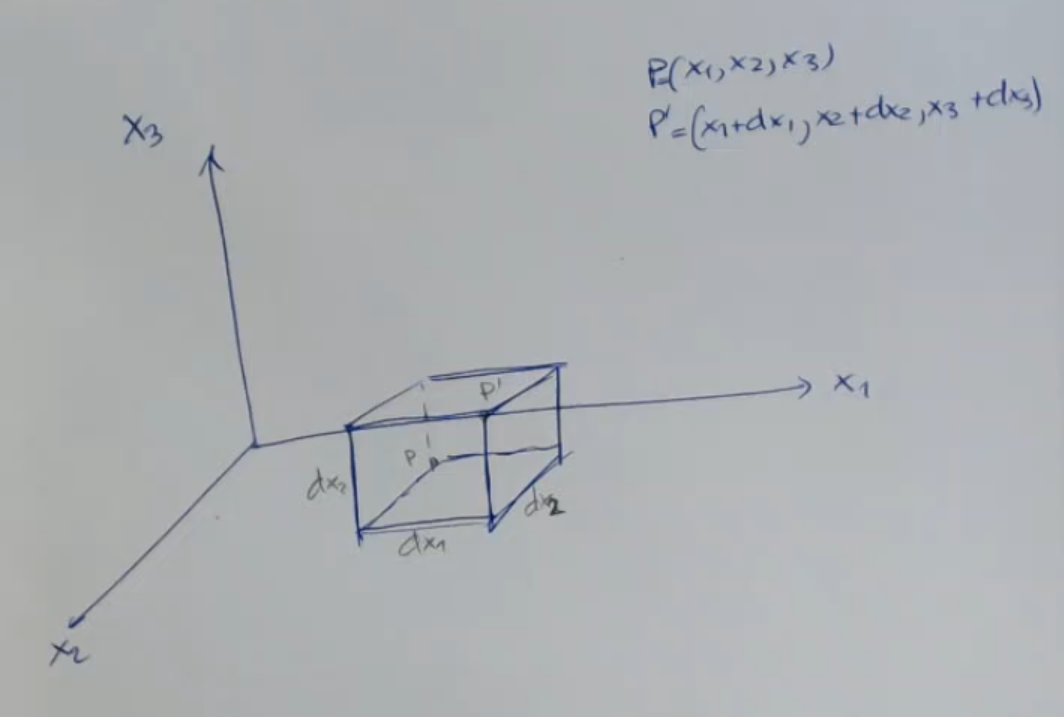 P=(x1,x2,x3)
P'=(x1+dx1,x2+dx2,x3+dx3)
x3
x1
P'
P
dx2
dx2
dx1
x2